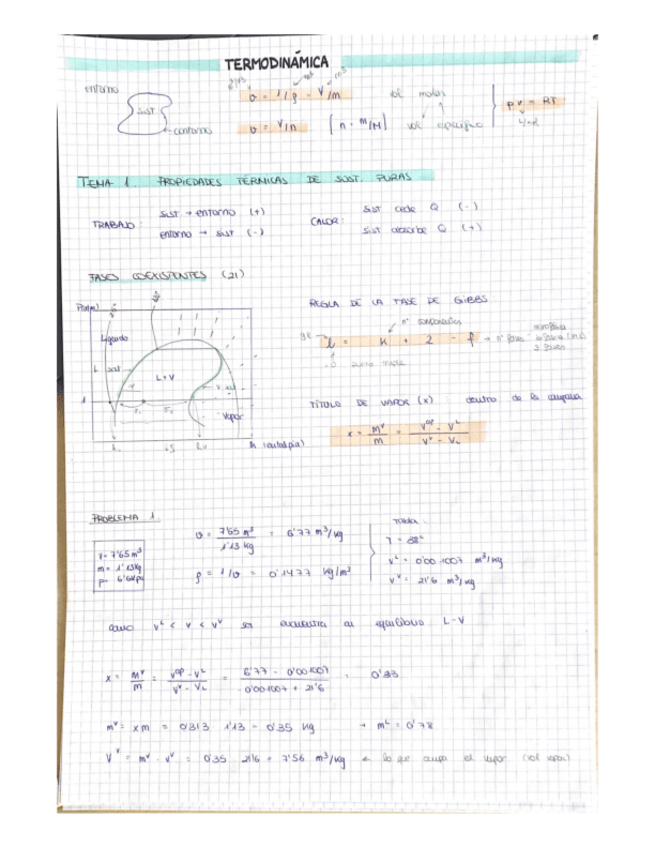 TERMODINÁMICA
entorno
SIST
contorno
v = 1/ρ = V/m
v = V/n [n = m/M]
vol molar
vol específico
P v = RT
TEMA 1. PROPIEDADES TÉRMICAS DE SUST. PURAS
TRABAJO:
sist → entorno (+)
entorno → sist (-)
CALOR:
sist cede Q (-)
sist absorbe Q (+)
FASES COEXISTENTES (21)
Líquido
L + V
Vapor
h (entalpía)
REGLA DE LA FASE DE GIBBS
nº componentes
l = K + 2 - f → nº fases
TÍTULO DE VAPOR (x): dentro de la campana
x = m^v/m = (v^op - v^L)/(v^v - v_L)
PROBLEMA 1
V = 7'65 m³
m = 1'13 kg
v = 7'65 m³/1'13 kg = 6'77 m³/kg
ρ = 1/v = 0'1477 kg/m³
v^L = 0'00 1007 m³/kg
v^v = 21'6 m³/kg
como v^L < v < v^v se encuentra en equilibrio L-V
x = m^v/m = (v^op - v^L)/(v^v - v_L) = (6'77 - 0'001007)/(-0'001007 + 21'6) =
m^v = x m = 0'313 1'13 = 0'35 kg → m^L = 0'78
V^v = m^v · v^v = 0'35 21'6 = 7'56 m³/kg ← lo que ocupa el vapor (vol vapor)